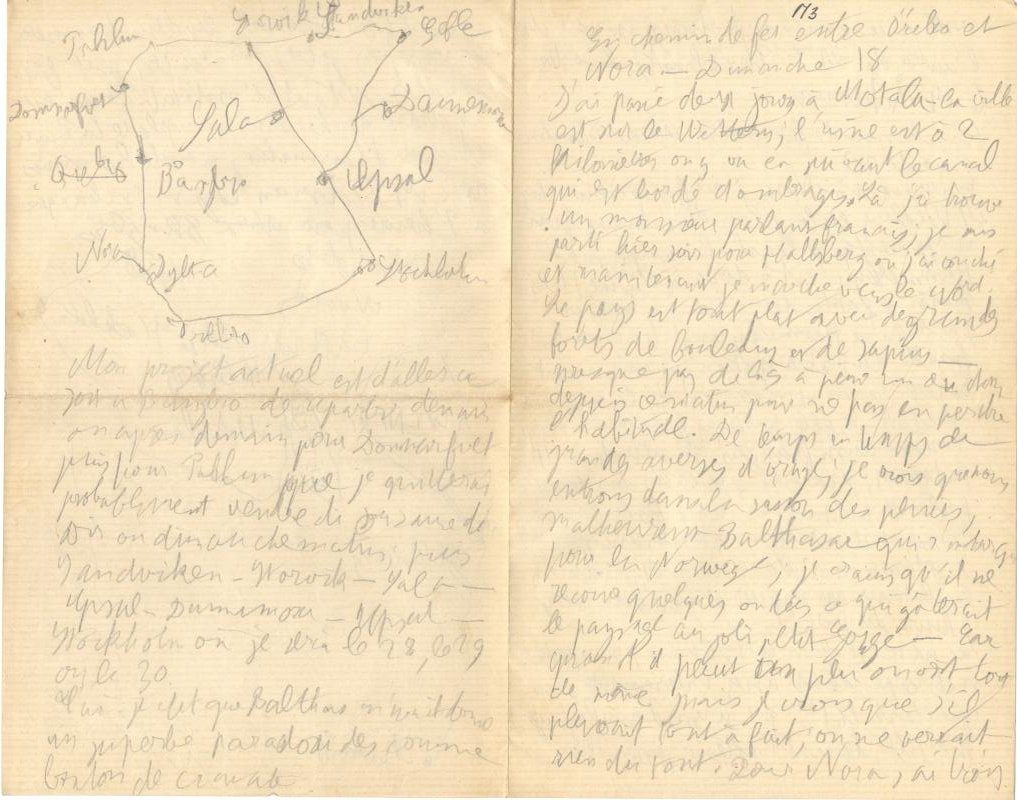 Storvik Sandviken Gefle
Fahlun
Domnarfvet
Sala
Dannemora
Örebro
Bo
Upsal
Nora
Dylta
Stockholm
Örebro
Mon projet actuel est d'aller ce
soir à de repartir demain
ou après demain pour Domnarfvet
puis pour Fahlun que je quitterai
probablement vendredi
soir ou dimanche matin, puis
Sandviken - Storvik - Sala -
Upsal - Dannemora - Upsal -
Stockholm où je serai le 28, le 29
ou le 30.
que Balthasar
un superbe paradoxides comme
bouton de cravate
173
En chemin de fer entre Örebro et
Nora - Dimanche 18
J'ai passé deux jours à Motala - La ville
est sur le Wettern; l'usine est à 2
kilomètres on y va en suivant le canal
qui est bordé d'ombrages. Là j'ai trouvé
un monsieur parlant français; je suis
parti hier soir pour Hallsberg où j'ai couché
et maintenant je marche vers le Nord.
Le pays est tout plat avec de grandes
forêts de bouleaux et de sapins -
presque pas de à peine un ou deux
depuis ce matin pour ne pas en perdre
l'habitude. De temps en temps de
grandes averses d'orage; je crois que nous
entrons dans la saison des pluies,
malheureux Balthasar qui s'embarque
pour la Norwège; je crains qu'il ne
reçoive quelques ondées ce qui gâterait
le paysage au joli petit - Car
quand il pleut on sort tout
de même mais je crois que s'il
pleuvait tout à fait, on ne verrait
rien du tout. Pour Nora, j'ai trois